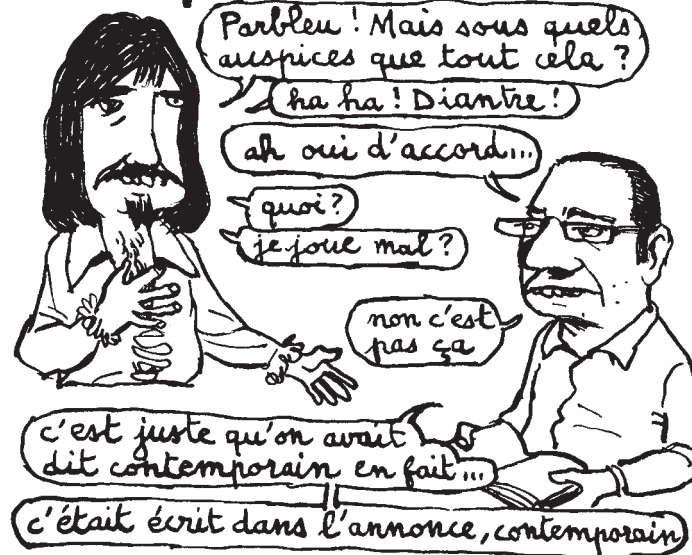 Parbleu ! Mais sous quels
auspices que tout cela ?
ha ha ! Diantre !
ah oui d'accord...
quoi ?
je joue mal ?
non c'est
pas ça
c'est juste qu'on avait
dit contemporain en fait...
c'était écrit dans l'annonce, contemporain